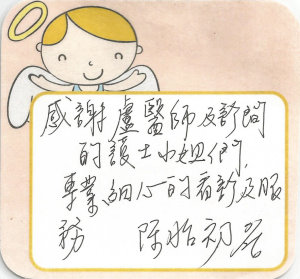 感謝盧醫師及診間
的護士小姐們,
專業、細心的看診及服
務 陳怡初